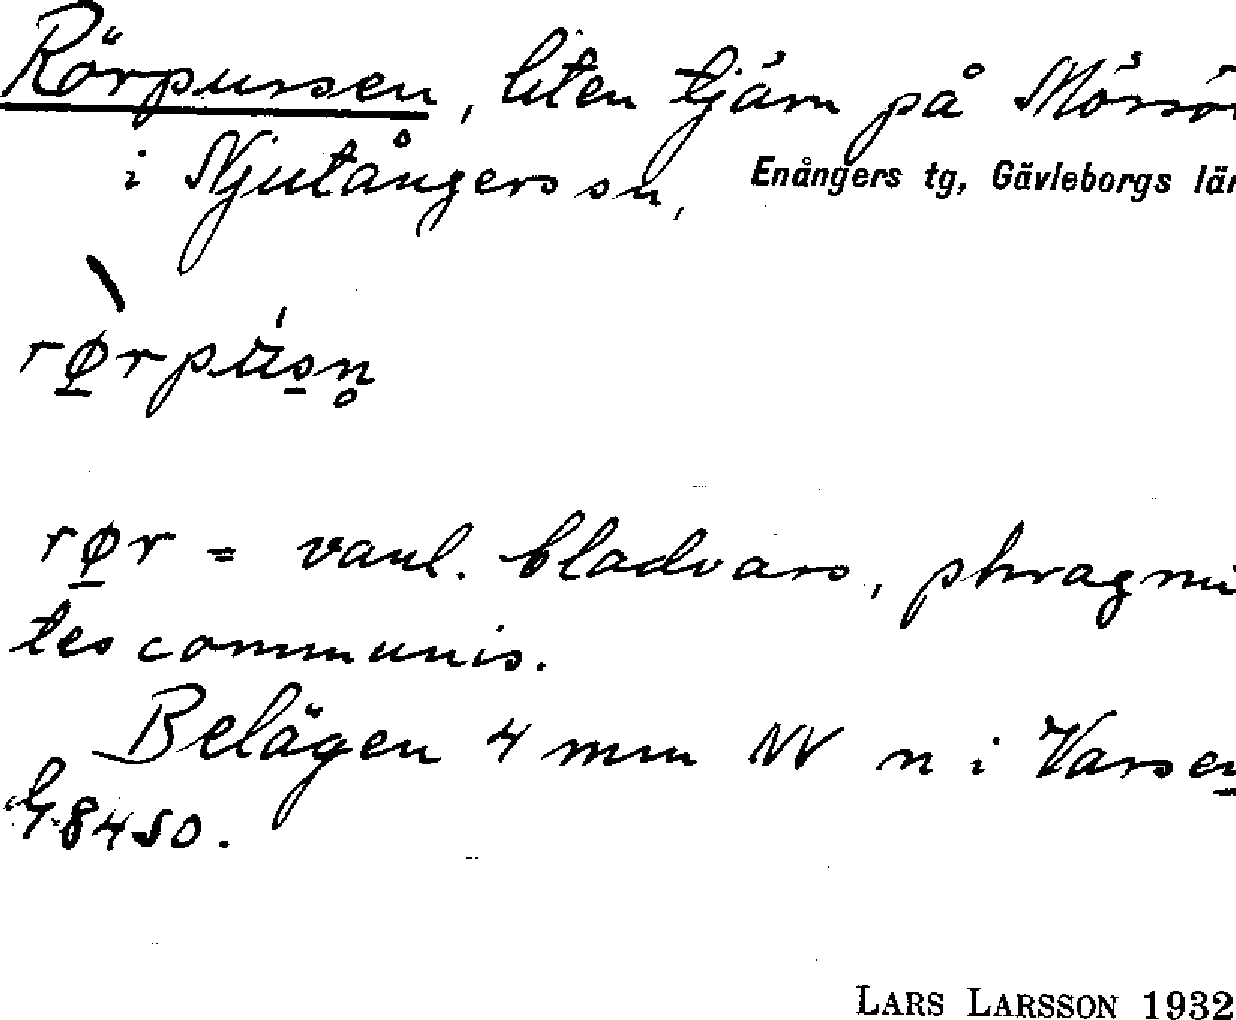 Rörpussen, liten tjärn på Mörsö
i Njutångers sn, Enångers tg, Gävleborgs län
rørpusn̥
rør = vanl. bladvass, phragmi
tes communis.
Belägen 4 mm NV n i Varsen
8450.
LARS LARSSON 1932